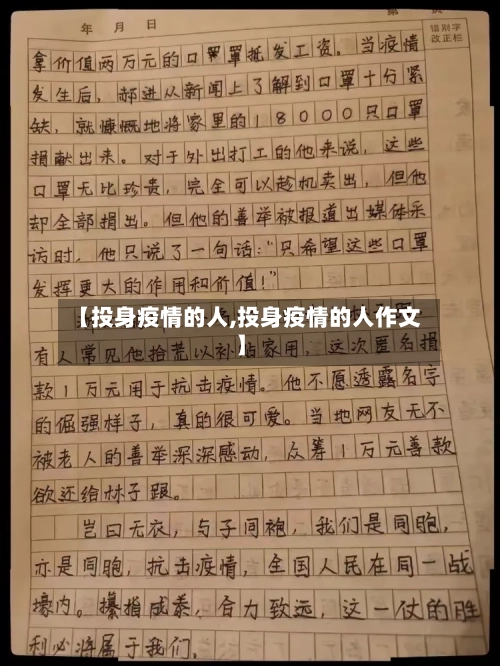 年 月 日
第 页
错别字
改正栏
拿价值两万元的口罩抵发工资。当疫情
发生后，郝进从新闻上了解到口罩十分紧
缺，就慷慨地将家里的18000只口罩
捐献出来。对于外出打工的他来说，这些
口罩无比珍贵，完全可以趁机卖出，但他
却全部捐出。但他的善举被报道出媒体采
访时，他只说了一句话：“只希望这些口罩
发挥更大的作用和价值！”
【投身疫情的人,投身疫情的人作文
】
有人常见他拾荒以补贴家用，这次匿名捐
款1万元用于抗击疫情。他不愿透露名字
的倔强样子，真的很可爱。当地网友无不
被老人的善举深深感动，众筹1万元善款
欲还给林子跟。
岂曰无衣，与子同袍，我们是同胞，
亦是同胞，抗击疫情，全国人民在同一战
壕内。攥指成拳，合力致远，这一仗的胜
利必将属于我们。